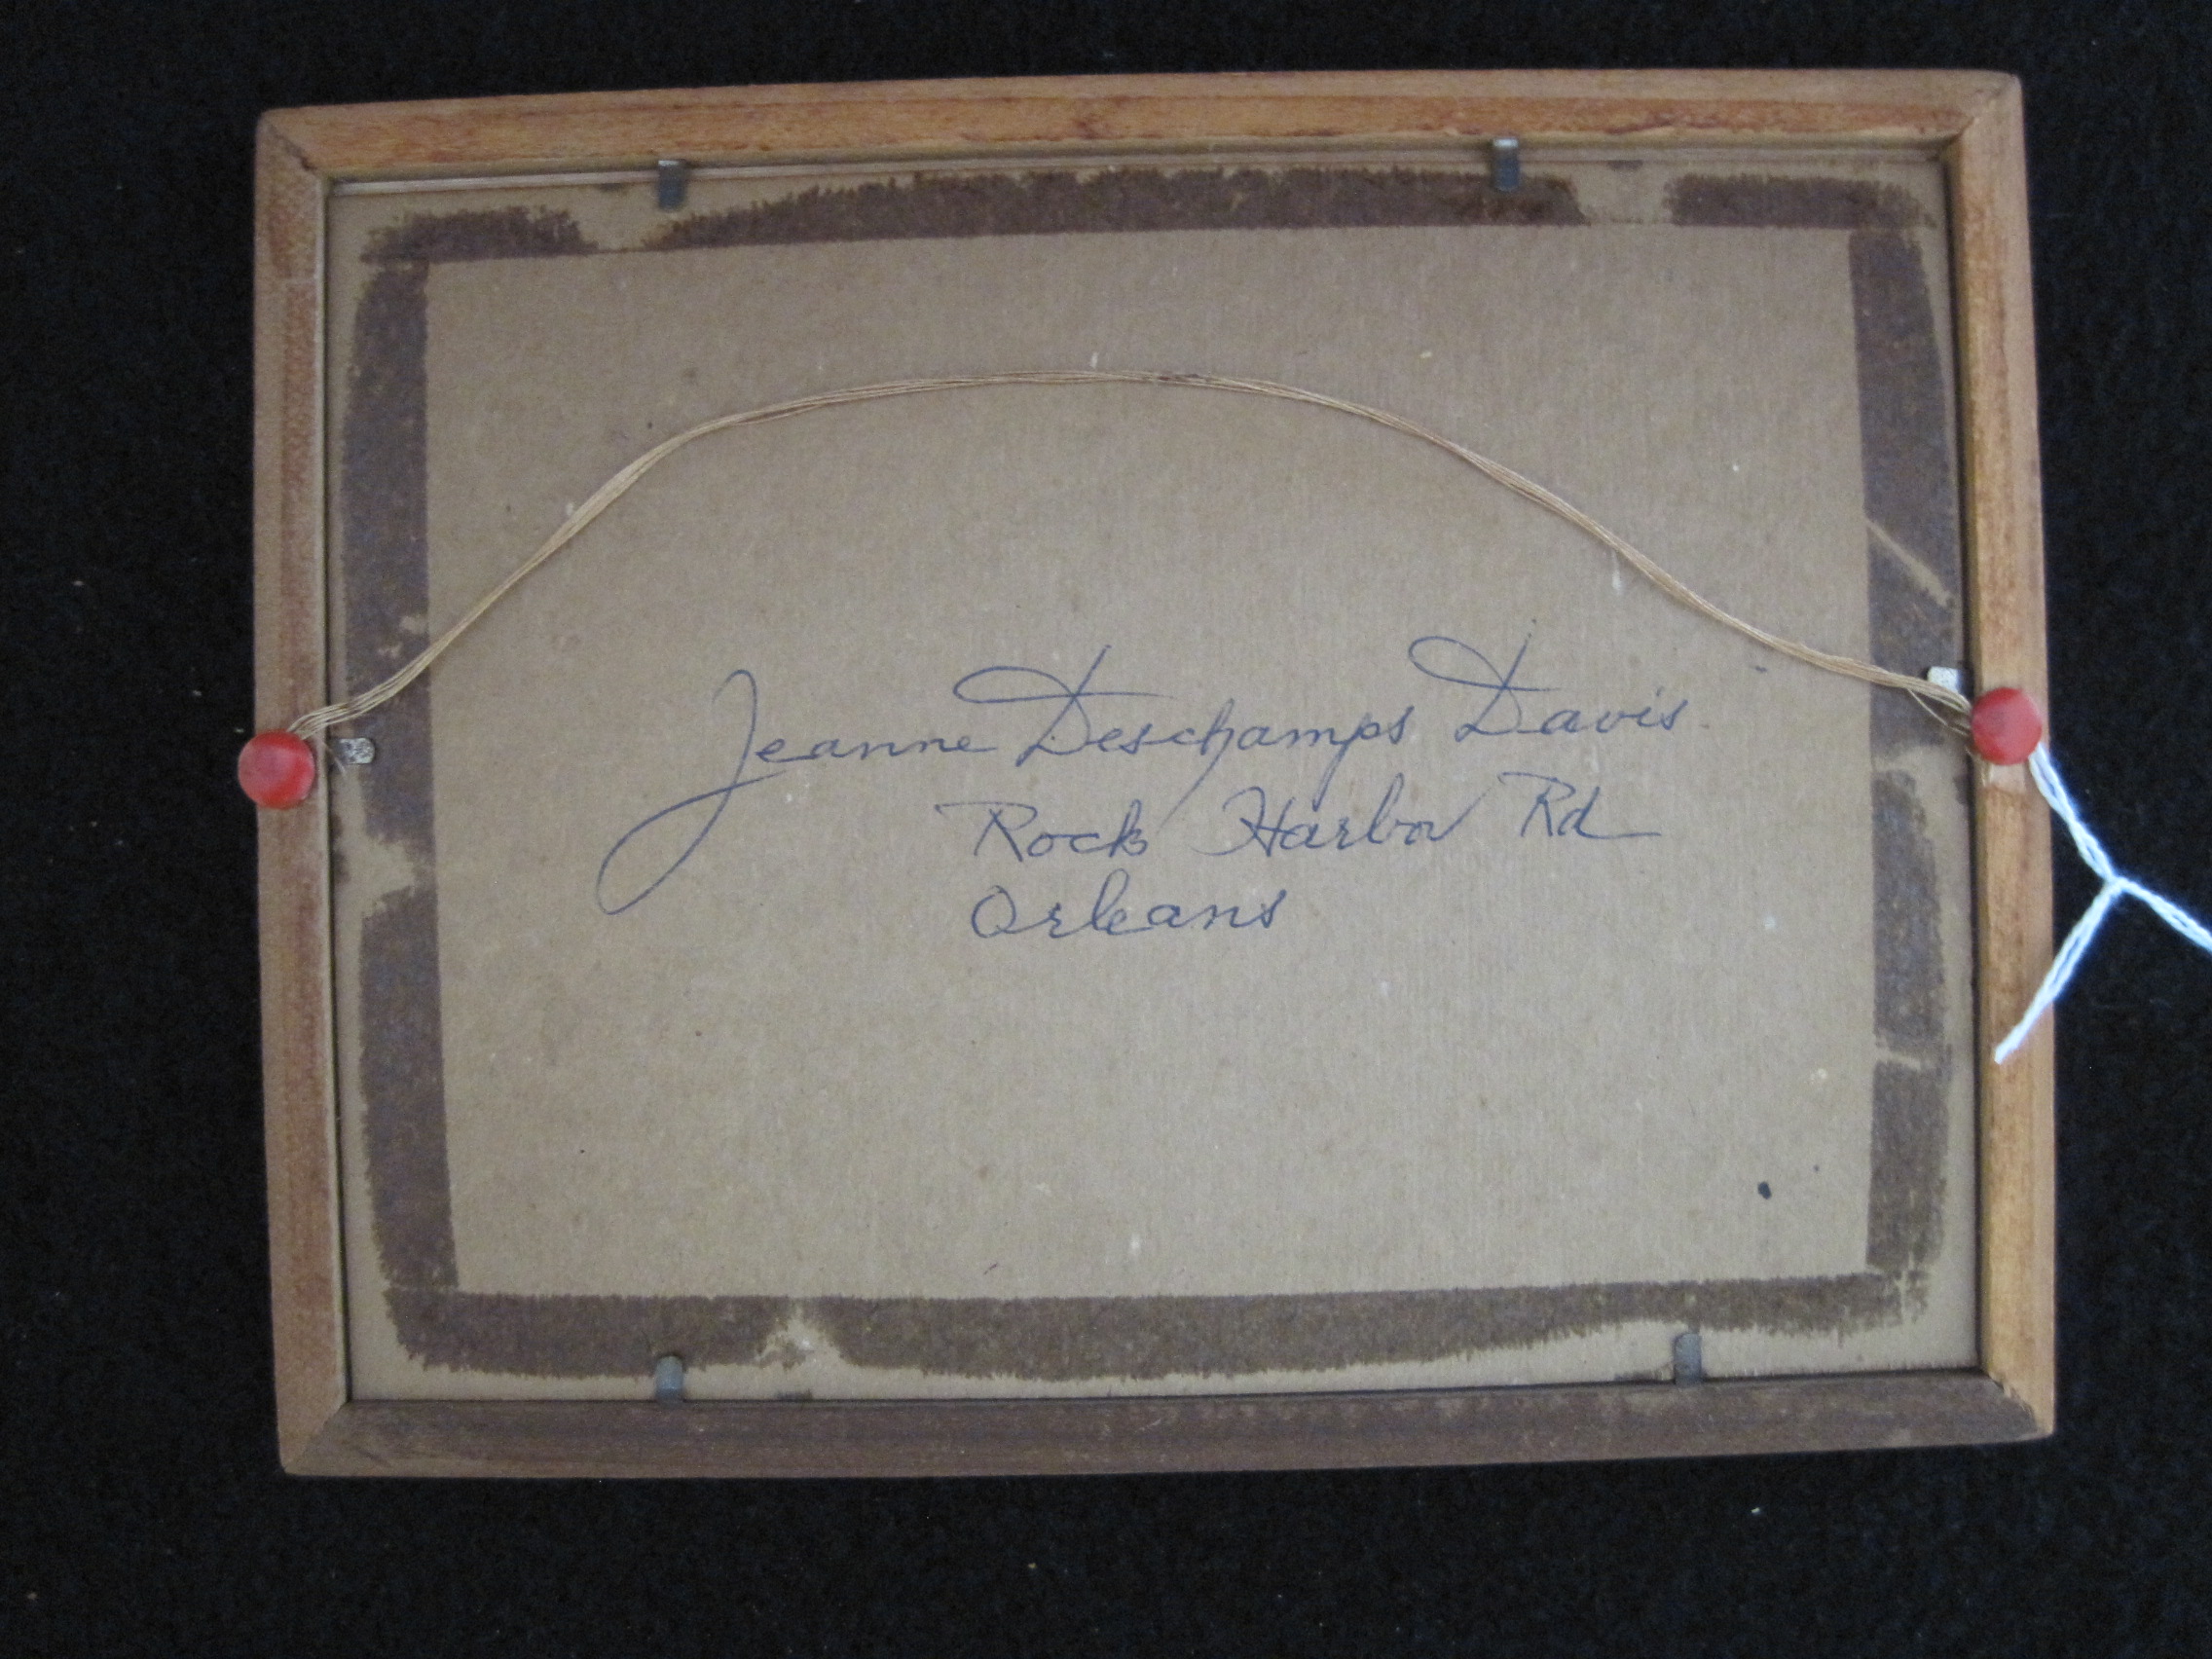 Jeanne Deschamps Davis
Rock Harbor Rd
Orleans